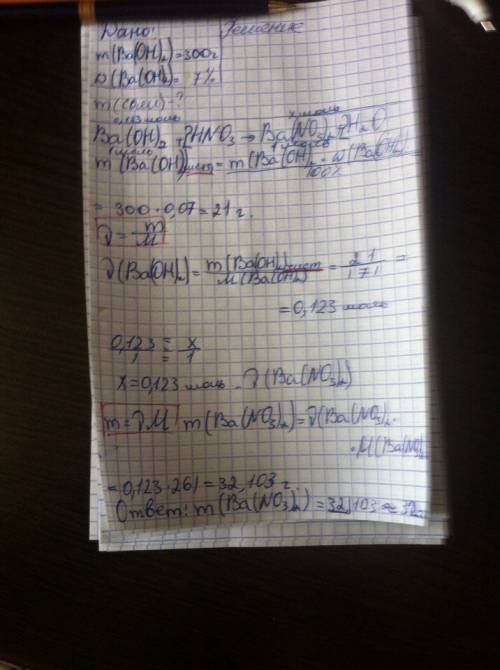 Дано: Решение
m(Ba(OH)₂)=300г
ω(Ba(OH)₂)= 7%
m(соли)-?
0,123 моль x моль
Ba(OH)₂+2HNO₃→Ba(NO₃)₂+2H₂O
1 моль 1 моль
m(Ba(OH)₂)чист=m(Ba(OH)₂·ω(Ba(OH)₂)/100%
=300·0,07=21г.
ν=m/M
ν(Ba(OH)₂)=m(Ba(OH)₂)чист/M(Ba(OH)₂)=21/171=
=0,123 моль
0,123/1=x/1
x=0,123 моль - ν(Ba(NO₃)₂)
m=νM m(Ba(NO₃)₂)=ν(Ba(NO₃)₂·
·M(Ba(NO₃)₂
=0,123·261=32,103г.
Ответ: m(Ba(NO₃)₂)=32,103≈32г